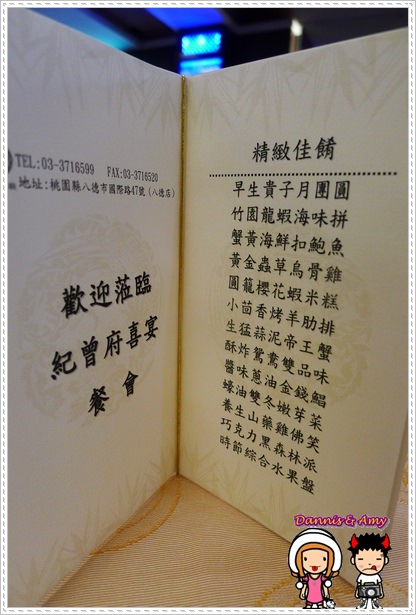 TEL:03-3716599 FAX:03-3716520
地址:桃園縣八德市國際路47號(八德店)
歡迎蒞臨
紀曾府喜宴
餐會
精緻佳餚
早生貴子月團圓
竹園龍蝦海味拼
蟹黃海鮮扣鮑魚
黃金蟲草烏骨雞
圓籠櫻花蝦米糕
小茴香烤羊肋排
生猛蒜泥帝王蟹
酥炸鴛鴦雙品味
醬味蔥油金錢鯧
蠔油雙冬嫩芽菜
養生山藥雞佛笑
巧克力黑森林派
時節綜合水果盤
Dannis & Amy